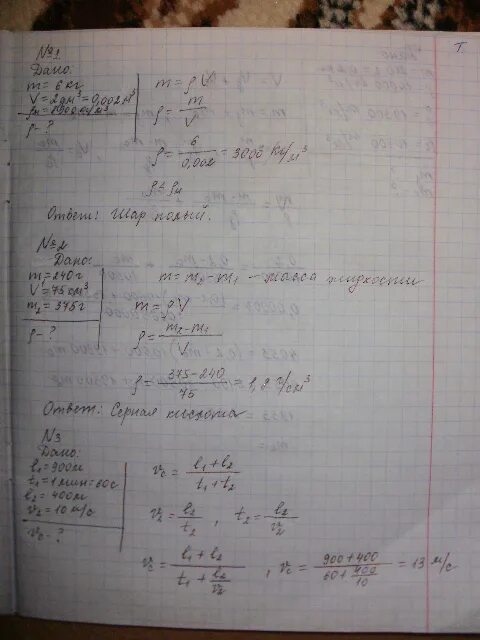 №1
Дано:
m = 6 кг
V = 2 дм³ = 0,002 м³
ρм = 8900 кг/м³
ρ - ?
m = ρV
ρ = m/V
ρ = 6/0,002 = 3000 кг/м³
ρ < ρм
Ответ: Шар полый.
№2
Дано:
m₁ = 240 г
V = 75 см³
m₂ = 375 г
ρ - ?
m = m₂ - m₁ - масса жидкости
m = ρV
ρ = (m₂ - m₁)/V
ρ = (375 - 240)/75 = 1,8 г/см³
Ответ: Серная кислота
№3
Дано:
l₁ = 900 м
t₁ = 1 мин = 60 с
l₂ = 400 м
v₂ = 10 м/с
vc - ?
vc = (l₁ + l₂)/(t₁ + t₂)
v₂ = l₂/t₂, t₂ = l₂/v₂
vc = (l₁ + l₂)/(t₁ + l₂/v₂), vc = (900 + 400)/(60 + 400/10) = 13 м/с